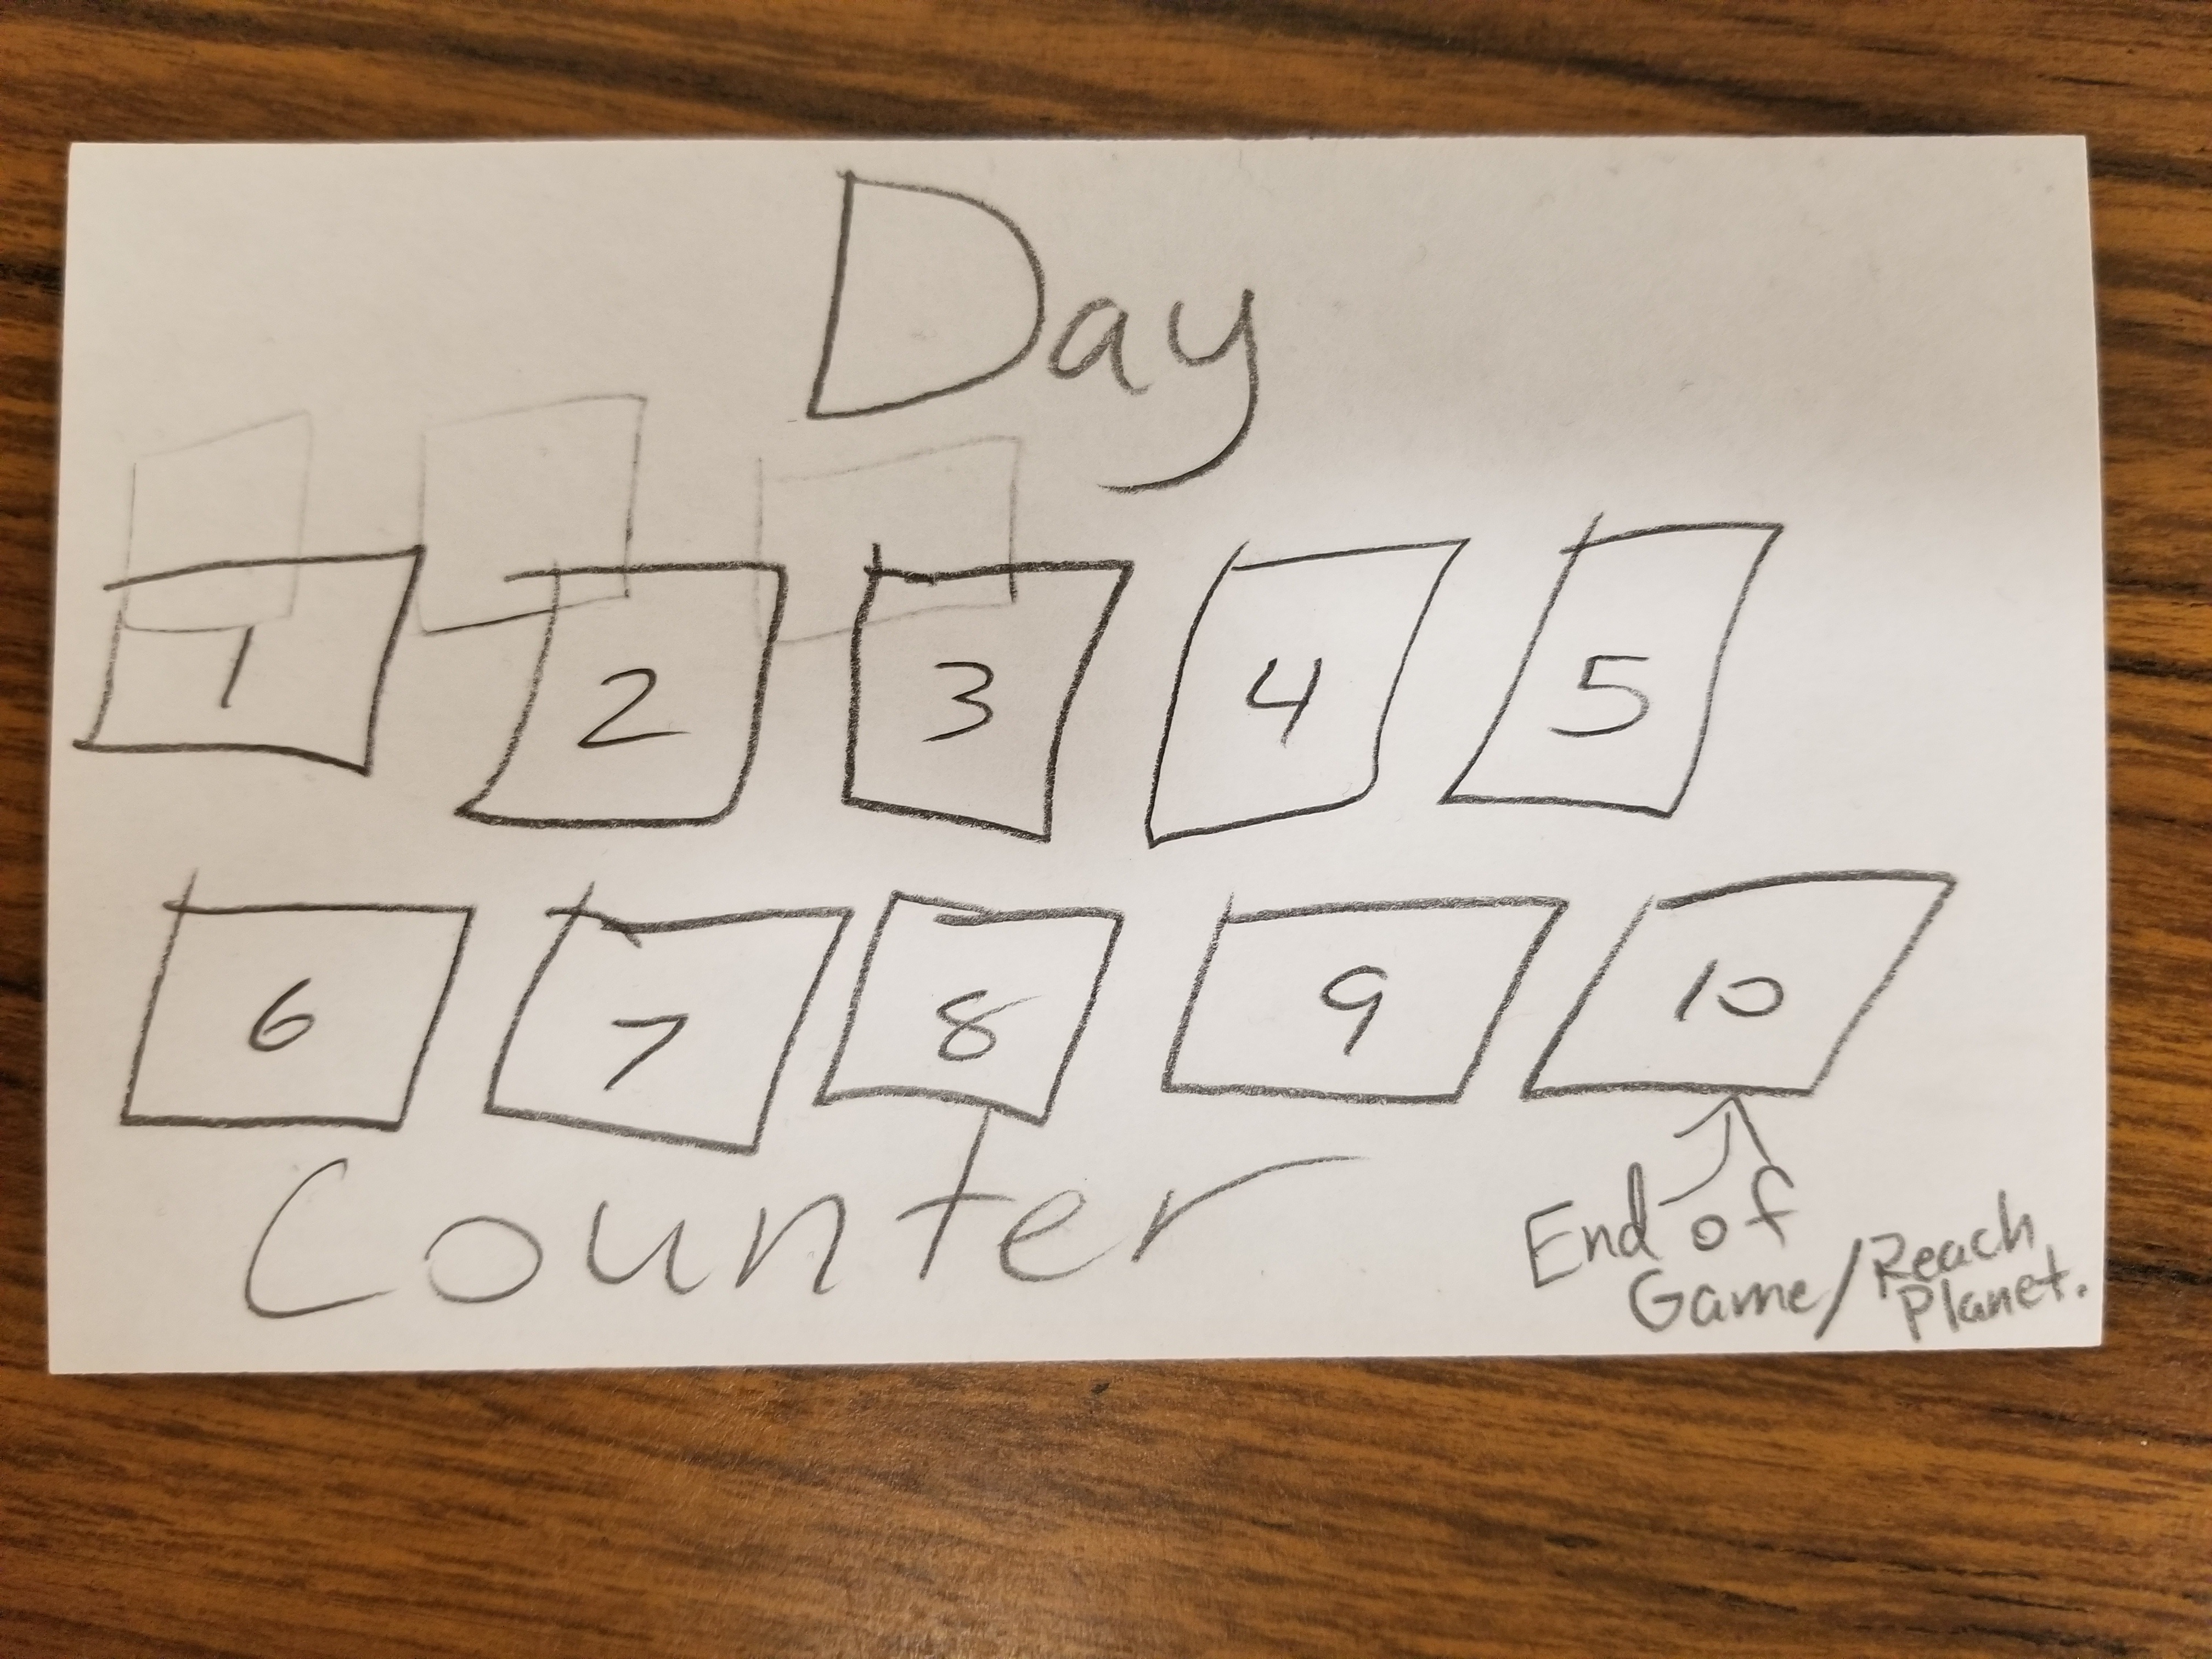 Day
1 2 3 4 5
6 7 8 9 10
Counter
End of
Game/Reach
Planet.